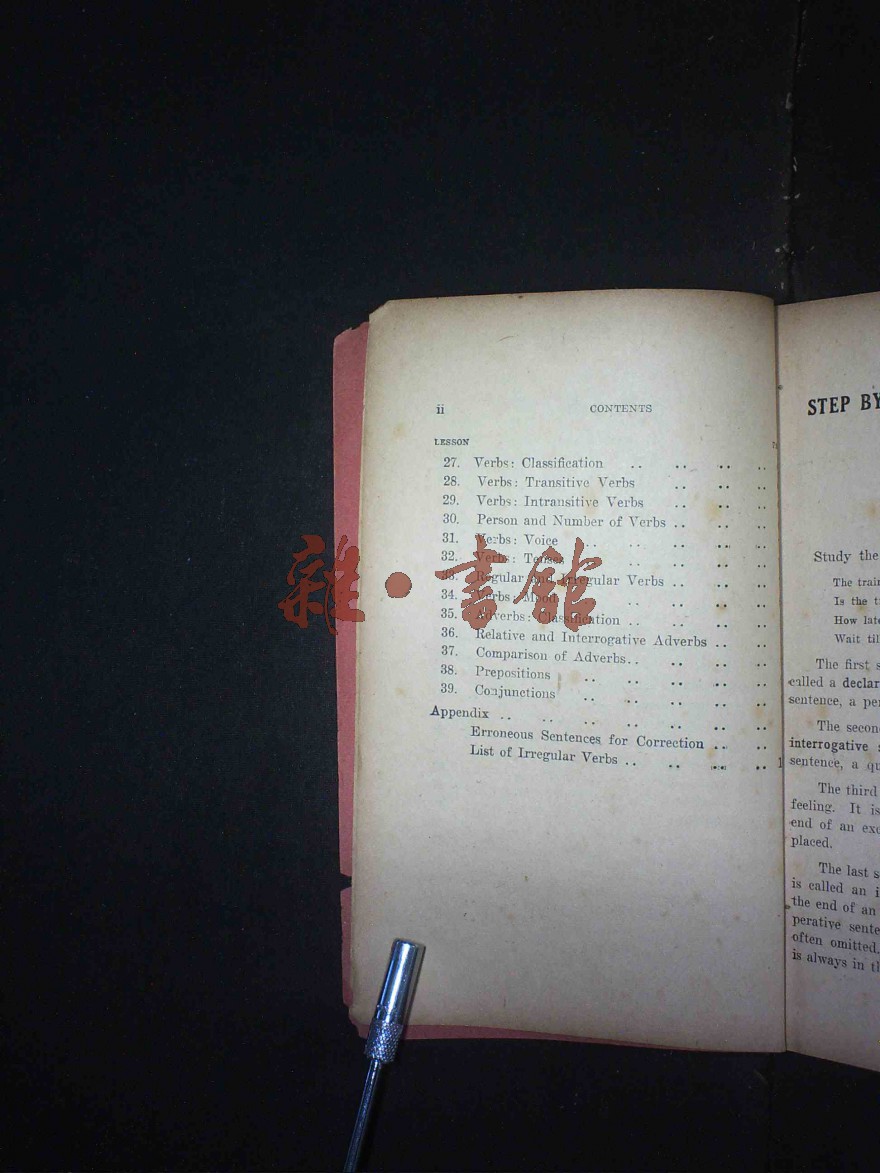 ii CONTENTS
LESSON
27. Verbs: Classification .. .. .. ..
28. Verbs: Transitive Verbs .. .. ..
29. Verbs: Intransitive Verbs .. .. ..
30. Person and Number of Verbs .. .. .. ..
31. Verbs: Voice .. .. .. .. ..
32. Verbs: Tenses .. .. .. .. ..
33. Regular and Irregular Verbs .. .. .. ..
34. Verbs: Mood .. .. .. .. ..
35. Adverbs: Classification .. .. .. ..
36. Relative and Interrogative Adverbs .. ..
37. Comparison of Adverbs.. .. .. ..
38. Prepositions .. .. .. ..
39. Conjunctions .. .. .. .. ..
Appendix .. .. .. .. .. .. ..
Erroneous Sentences for Correction .. ..
List of Irregular Verbs .. .. .. .. 1
雜·書館
STEP BY
Study the
The train
Is the t
How late
Wait til
The first s
called a declar
sentence, a per
The secon
interrogative s
sentence, a qu
The third
feeling. It is
end of an exc
placed.
The last s
is called an i
the end of an
perative sente
often omitted.
is always in th